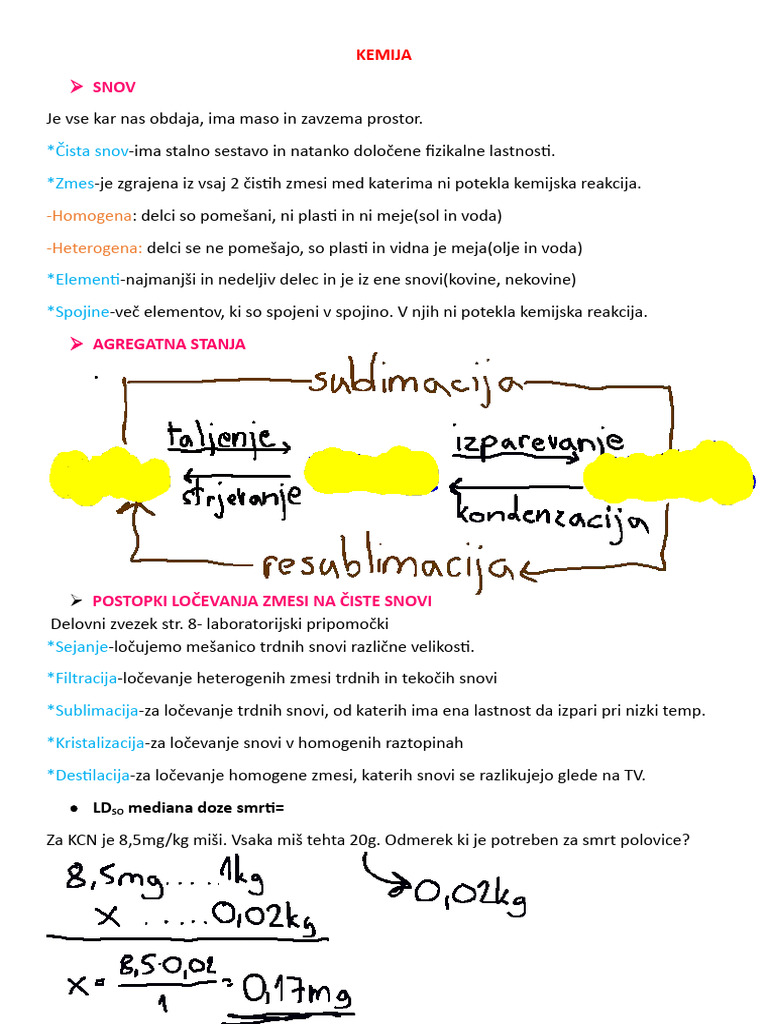 KEMIJA
➢ SNOV
Je vse kar nas obdaja, ima maso in zavzema prostor.
*Čista snov-ima stalno sestavo in natanko določene fizikalne lastnosti.
*Zmes-je zgrajena iz vsaj 2 čistih zmesi med katerima ni potekla kemijska reakcija.
-Homogena: delci so pomešani, ni plasti in ni meje(sol in voda)
-Heterogena: delci se ne pomešajo, so plasti in vidna je meja(olje in voda)
*Elementi-najmanjši in nedeljiv delec in je iz ene snovi(kovine, nekovine)
*Spojine-več elementov, ki so spojeni v spojino. V njih ni potekla kemijska reakcija.
➢ AGREGATNA STANJA
sublimacija
taljenje izparevanje
strjevanje kondenzacija
resublimacija
➢ POSTOPKI LOČEVANJA ZMESI NA ČISTE SNOVI
Delovni zvezek str. 8- laboratorijski pripomočki
*Sejanje-ločujemo mešanico trdnih snovi različne velikosti.
*Filtracija-ločevanje heterogenih zmesi trdnih in tekočih snovi
*Sublimacija-za ločevanje trdnih snovi, od katerih ima ena lastnost da izpari pri nizki temp.
*Kristalizacija-za ločevanje snovi v homogenih raztopinah
*Destilacija-za ločevanje homogene zmesi, katerih snovi se razlikujejo glede na TV.
● LD₅₀ mediana doze smrti=
Za KCN je 8,5mg/kg miši. Vsaka miš tehta 20g. Odmerek ki je potreben za smrt polovice?
8,5mg.....1kg
0,02kg
x .....0,02kg
x = 8,5·0,02/1 = 0,17mg